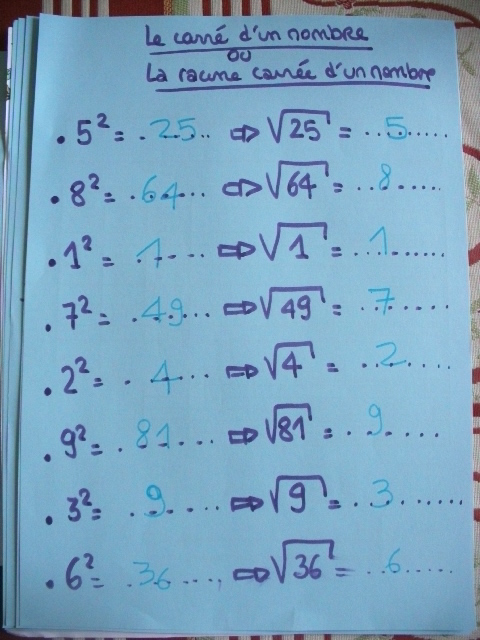 Le carré d'un nombre
ou
La racine carrée d'un nombre
• 5² = . 25 .. ⇨ √25 = .. 5 .....
• 8² = . 64 ... ⇨ √64 = .. 8 .....
• 1² = . 1 .... ⇨ √1 = ... 1 ......
• 7² = . 49 ... ⇨ √49 = .. 7 .....
• 2² = . 4 ... ⇨ √4 = .. 2 ....
• 9² = . 81 ... ⇨ √81 = . 9 ....
• 3² = . 9 .... ⇨ √9 = .. 3 ......
• 6² = . 36 .... ⇨ √36 = .. 6 .....